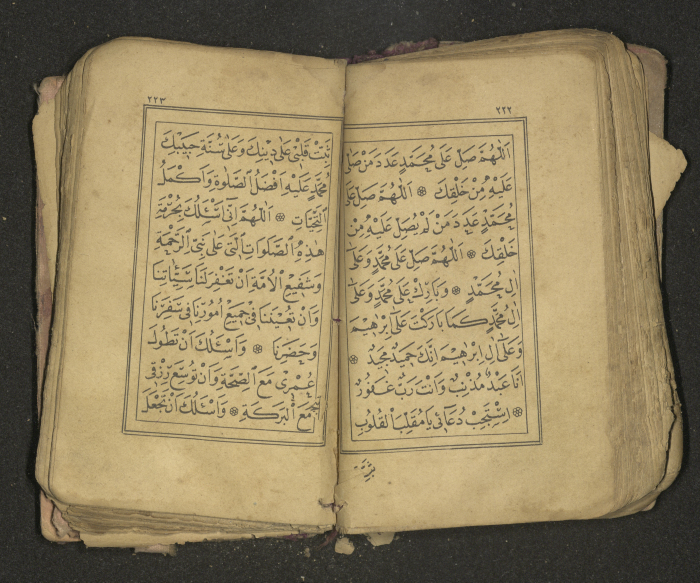 ٢٢٢
اَللّٰهُمَّ صَلِّ عَلٰى مُحَمَّدٍ عَدَدَ مَنْ صَلّٰى
عَلَيْهِ مِنْ خَلْقِكَ ❁ اَللّٰهُمَّ صَلِّ عَلٰى
مُحَمَّدٍ عَدَدَ مَنْ لَمْ يُصَلِّ عَلَيْهِ مِنْ
خَلْقِكَ ❁ اَللّٰهُمَّ صَلِّ عَلٰى مُحَمَّدٍ وَعَلٰى
اٰلِ مُحَمَّدٍ ❁ وَبَارِكْ عَلٰى مُحَمَّدٍ وَعَلٰى
اٰلِ مُحَمَّدٍ كَمَا بَارَكْتَ عَلٰى اِبْرٰهِيمَ
وَعَلٰى اٰلِ اِبْرٰهِيمَ اِنَّكَ حَمِيدٌ مَجِيدٌ ❁
اَنَا عَبْدٌ مُذْنِبٌ وَاَنْتَ رَبٌّ غَفُورٌ
❁ اِسْتَجِبْ دُعَائِى يَا مُقَلِّبَ الْقُلُوبِ
ثَبِّتْ
٢٢٣
ثَبِّتْ قَلْبِى عَلٰى دِينِكَ وَعَلٰى سُنَّةِ حَبِيبِكَ
مُحَمَّدٍ عَلَيْهِ اَفْضَلُ الصَّلٰوةِ وَاَكْمَلُ
التَّحِيَّاتِ ❁ اَللّٰهُمَّ اِنِّى اَسْئَلُكَ بِحُرْمَةِ
هٰذِهِ الصَّلَوَاتِ الَّتِى عَلٰى نَبِىِّ الرَّحْمَةِ
وَشَفِيعِ الْاُمَّةِ اَنْ تَغْفِرَ لَنَا سَيِّئَاتِنَا
وَاَنْ تُعِينَنَا فِى جَمِيعِ اُمُورِنَا فِى سَفَرِنَا
وَحَضَرِنَا ❁ وَاَسْئَلُكَ اَنْ تُطَوِّلَ
عُمْرِى مَعَ الصِّحَّةِ وَاَنْ تُوَسِّعَ رِزْقِى
مَعَ الْبَرَكَةِ ❁ وَاَسْئَلُكَ اَنْ تَجْعَلَ